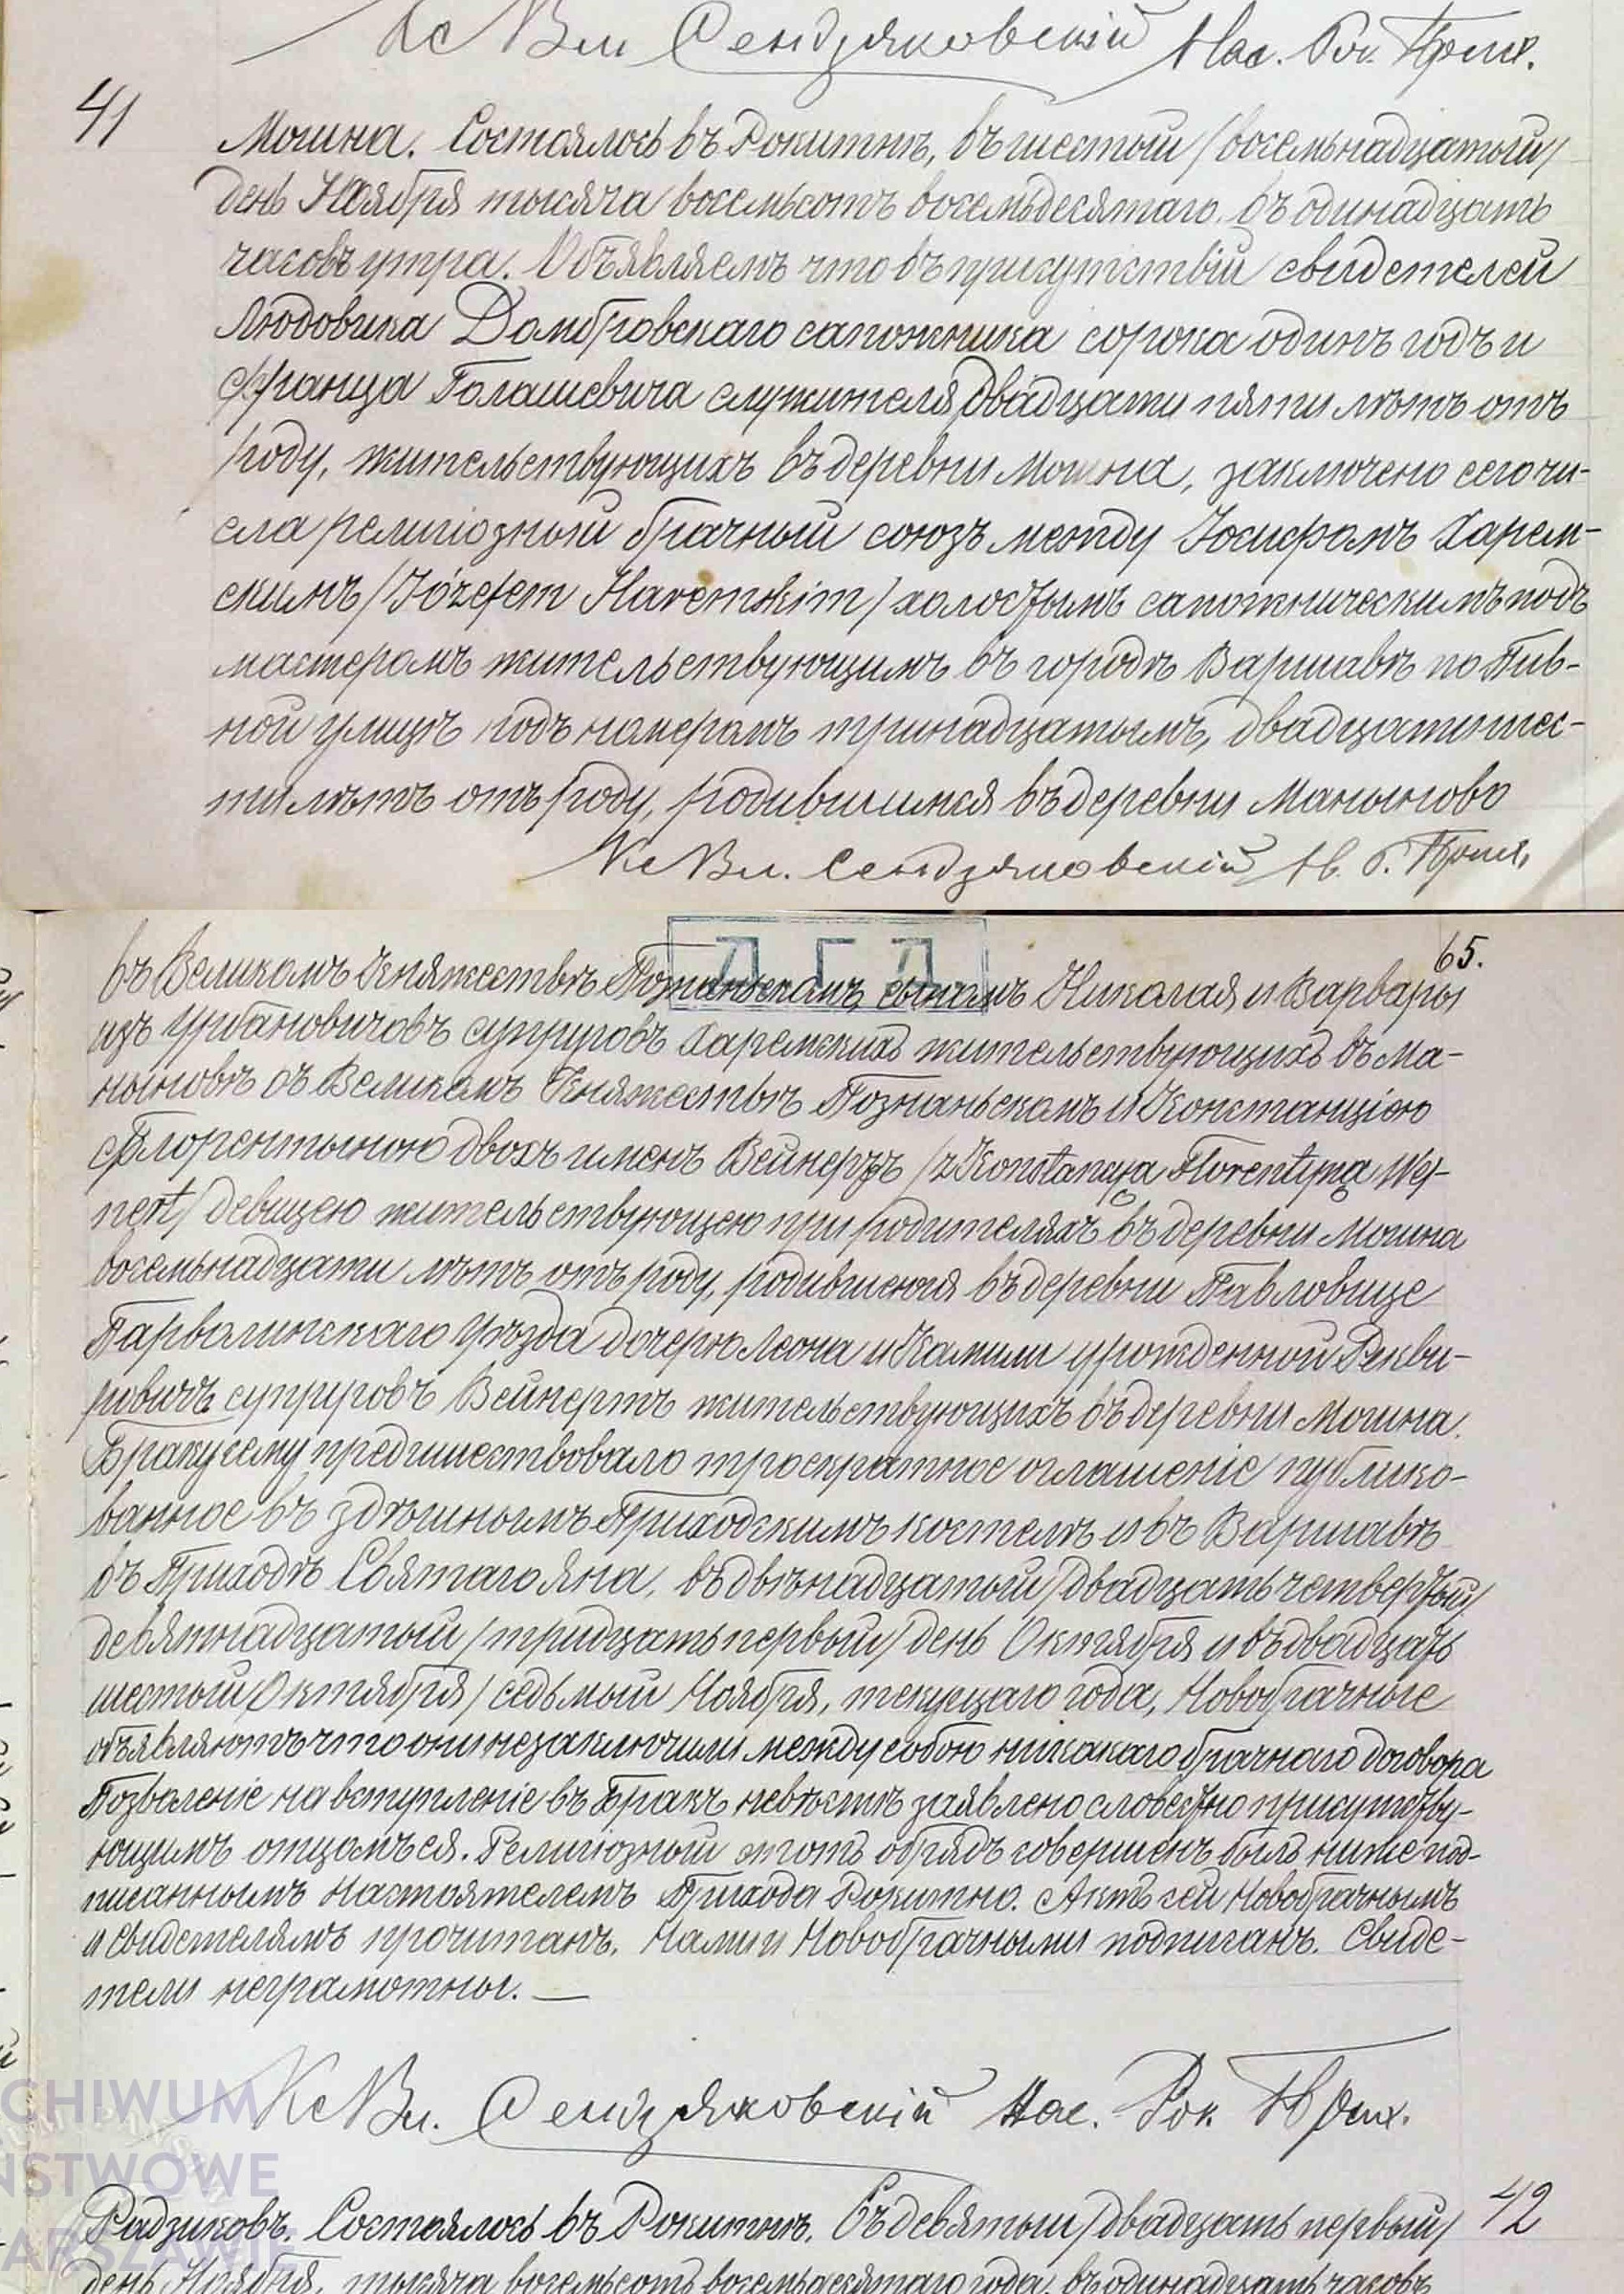 Кс Вл Сендзяковскій Нас. Рок. Прих.
41
Мошна. Состоялось въ Рокитнѣ, въ шестый /восемьнадцатый/
день Ноября тысяча восемьсотъ восемьдесятаго въ одинадцать
часовъ утра. Объявляемъ что въ присутствіи свидетелей
Людовика Домбровскаго сапожника сорока одинъ годъ и
Франца Голашевича служителя двадцати пяти лѣтъ отъ
роду, жительствующихъ въ деревни Мошна, заключено сего чи-
сла религіозный брачный союзъ между Іосифомъ Харем-
скимъ /Józefem Haremskim/ холостымъ сапожническимъ подъ
мастеромъ жительствующимъ въ городѣ Варшавѣ по Пив-
ной улицѣ подъ номеромъ тринадцатымъ, двадцати шес-
ти лѣтъ отъ роду, родившимся въ деревни Маныново
Кс Вл. Сендзяковскій Н. Р. Прих.
65.
въ Великомъ Княжествѣ Познаньскомъ, сыномъ Николая и Варвары
изъ Урбановичовъ супруговъ Харемскихъ жительствующихъ въ Ма-
ныновѣ въ Великомъ Княжествѣ Познаньскомъ и Констанціею
Флорентыною двохъ именъ Вейнертъ /z Konstancyą Florentyną Wej-
nert/ девицею жительствующею при родителяхъ въ деревни Мошна
восемьнадцати лѣтъ отъ роду, родившеюся въ деревни Павловице
Гарволинскаго Уѣзда дочерю Леона и Камили урожденной Рекви-
ровичъ супруговъ Вейнертъ жительствующихъ въ деревни Мошна.
Браку сему предшествовало троекратное оглашеніе публико-
ванное въ здѣшнымъ Приходскимъ костелѣ и въ Варшавѣ
въ Приходѣ Святаго Яна, въ двѣнадцатый /двадцать четвертый/
девятнадцатый /тридцать первый/ день Октября и въ двадцать
шестый Октября / седьмый Ноября, текущаго года, Новобрачные
объявляютъ что они незаключили между собою никакаго брачнаго договора
Позволеніе на вступленіе въ Бракъ невѣстѣ заявлено словестно присутству-
ющимъ отцомъ ея. Религіозный этотъ обрядъ совершенъ былъ ниже под-
писаннымъ Настоятелемъ Прихода Рокитно. Актъ сей Новобрачнымъ
и Свидетелямъ прочитанъ, Нами и Новобрачными подписанъ. Свиде-
тели неграмотны. —
Кс Вл. Сендзяковскій Нас. Рок Прих.
42
Радзиковъ. Состоялось въ Рокитнѣ. Въ девятый /двадцать первый/
день Ноября, тысяча восемьсотъ восемьдесятаго года, въ одинадцать часовъ